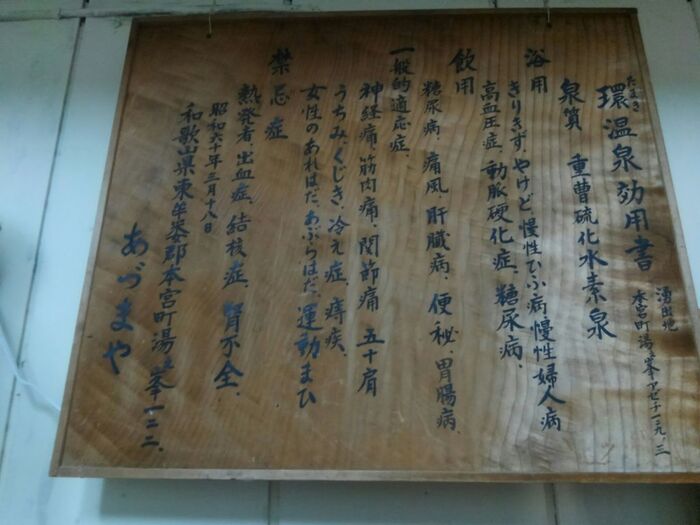 環温泉効用書
たまき
湧出地
本宮町湯峯アセチ一二九、三
泉質 重曹硫化水素泉
浴用
きりきず、やけど慢性ひふ病慢性婦人病
高血圧症、動脈硬化症、糖尿病、
飲用
糖尿病、痛風、肝臓病、便秘、胃腸病、
一般的適応症、
神経痛、筋肉痛、関節痛 五十肩
うちみ、くじき、冷え症、痔疾、
女性のあれはだ、あぶらはだ、運動まひ
禁忌症
熱発者、出血症、結核症、腎不全、
昭和六十年三月十八日
和歌山県東牟婁郡本宮町湯峯一二二、
あづまや